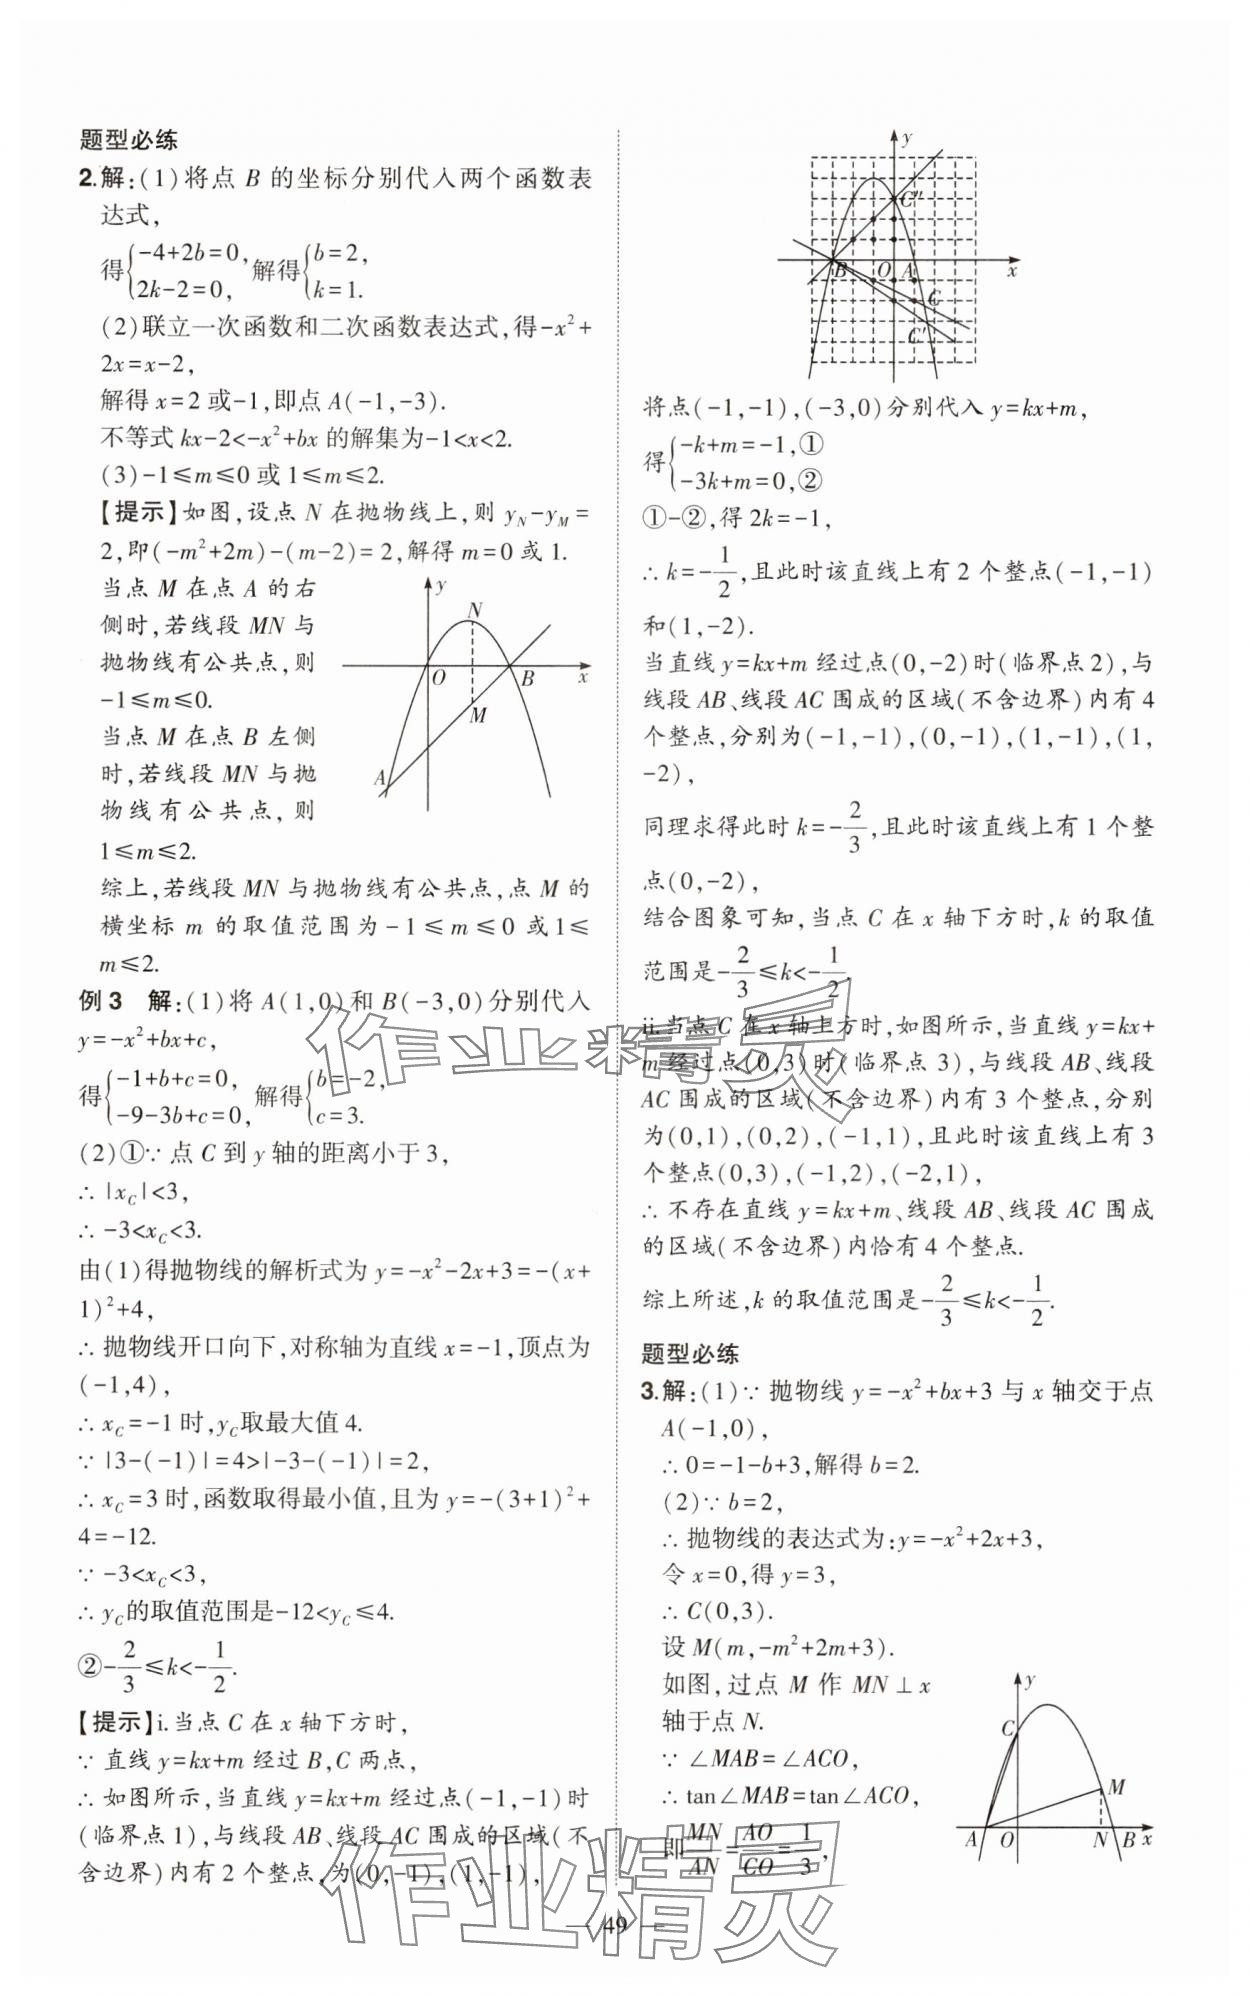 题型必练
2.解:(1)将点 B 的坐标分别代入两个函数表
达式,
得{-4+2b=0, 2k-2=0, 解得{b=2, k=1.
(2)联立一次函数和二次函数表达式,得-x²+
2x=x-2,
解得 x=2 或-1,即点 A(-1,-3).
不等式 kx-2<-x²+bx 的解集为-1<x<2.
(3)-1≤m≤0 或 1≤m≤2.
【提示】如图,设点 N 在抛物线上,则 y_N-y_M=
2,即(-m²+2m)-(m-2)=2,解得 m=0 或 1.
当点 M 在点 A 的右
侧时,若线段 MN 与
抛物线有公共点,则
-1≤m≤0.
当点 M 在点 B 左侧
时,若线段 MN 与抛
物线有公共点,则
1≤m≤2.
y
N
O
B
x
M
A
综上,若线段 MN 与抛物线有公共点,点 M 的
横坐标 m 的取值范围为-1≤m≤0 或1≤
m≤2.
例 3 解:(1)将 A(1,0)和 B(-3,0)分别代入
y=-x²+bx+c,
得{-1+b+c=0, -9-3b+c=0, 解得{b=-2, c=3.
(2)①∵点 C 到 y 轴的距离小于 3,
∴|x_C|<3,
∴-3<x_C<3.
由(1)得抛物线的解析式为 y=-x²-2x+3=-(x+
1)²+4,
∴抛物线开口向下,对称轴为直线 x=-1,顶点为
(-1,4),
∴x_C=-1 时,y_C取最大值 4.
∵|3-(-1)|=4>|-3-(-1)|=2,
∴x_C=3 时,函数取得最小值,且为 y=-(3+1)²+
4=-12.
∵-3<x_C<3,
∴y_C的取值范围是-12<y_C≤4.
②-2/3≤k<-1/2.
【提示】i.当点 C 在 x 轴下方时,
∵直线 y=kx+m 经过 B,C 两点,
∴如图所示,当直线 y=kx+m 经过点(-1,-1)时
(临界点 1),与线段 AB、线段 AC 围成的区域(不
含边界)内有 2 个整点,为(0,-1),(1,-1),
y
C″
B
O
A
x
C
C′
将点(-1,-1),(-3,0)分别代入 y=kx+m,
得{-k+m=-1,① -3k+m=0,②
①-②,得 2k=-1,
∴k=-1/2,且此时该直线上有 2 个整点(-1,-1)
和(1,-2).
当直线 y=kx+m 经过点(0,-2)时(临界点 2),与
线段 AB、线段 AC 围成的区域(不含边界)内有 4
个整点,分别为(-1,-1),(0,-1),(1,-1),(1,
-2),
同理求得此时 k=-2/3,且此时该直线上有 1 个整
点(0,-2),
结合图象可知,当点 C 在 x 轴下方时,k 的取值
范围是-2/3≤k<-1/2.
ii.当点 C 在 x 轴上方时,如图所示,当直线 y=kx+
m 经过点(0,3)时(临界点 3),与线段 AB、线段
AC 围成的区域(不含边界)内有 3 个整点,分别
为(0,1),(0,2),(-1,1),且此时该直线上有 3
个整点(0,3),(-1,2),(-2,1),
∴不存在直线 y=kx+m、线段 AB、线段 AC 围成
的区域(不含边界)内恰有 4 个整点.
综上所述,k 的取值范围是-2/3≤k<-1/2.
题型必练
3.解:(1)∵抛物线 y=-x²+bx+3 与 x 轴交于点
A(-1,0),
∴0=-1-b+3,解得 b=2.
(2)∵b=2,
∴抛物线的表达式为:y=-x²+2x+3,
令 x=0,得 y=3,
∴C(0,3).
设 M(m,-m²+2m+3).
如图,过点 M 作 MN⊥x
轴于点 N.
∵∠MAB=∠ACO,
∴tan∠MAB=tan∠ACO,
即MN/AN=AO/CO=1/3,
y
C
M
A
O
N
B
x
作业精灵
作业精灵
— 49 —